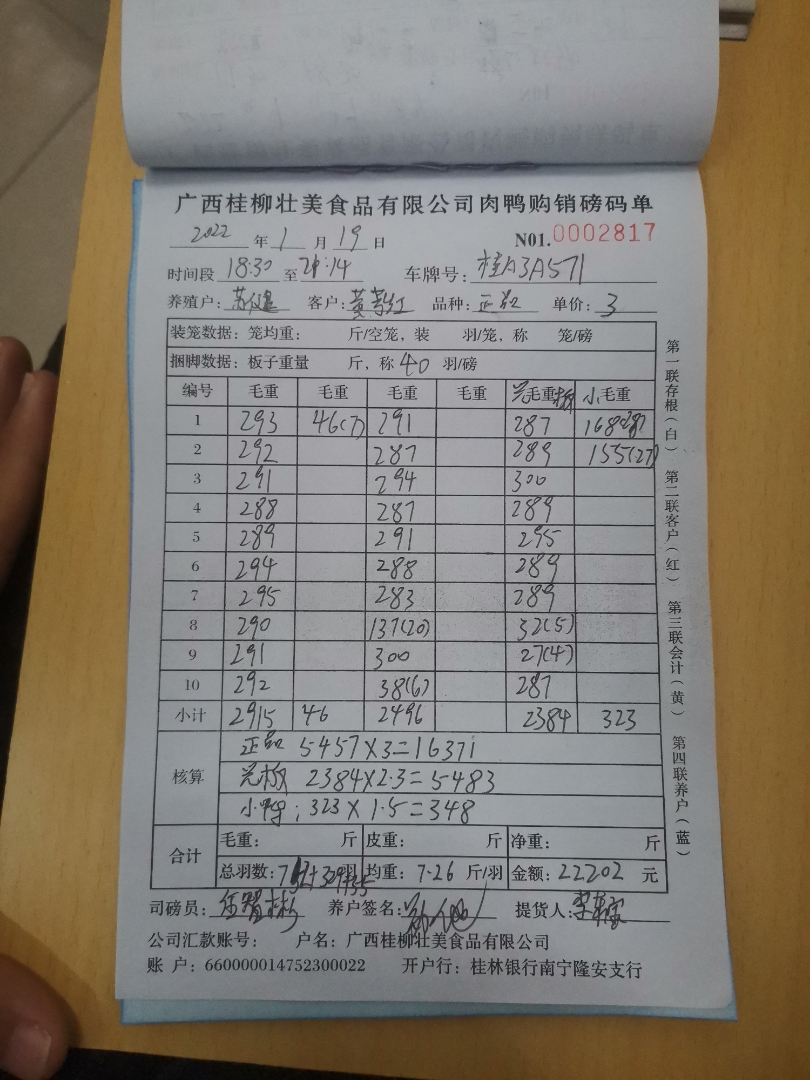 广西桂柳壮美食品有限公司肉鸭购销磅码单
2022 年 1 月 19 日 N01.0002817
时间段 18:30 至 21:14 车牌号: 桂A3A571
养殖户: 客户: 品种: 正品 单价: 3
装笼数据: 笼均重: 斤/空笼, 装 羽/笼, 称 笼/磅
捆脚数据: 板子重量 斤, 称 40 羽/磅
编号 毛重 毛重 毛重 毛重 毛重 小毛重
1 293 46(7) 291 287 168
2 292 287 289 155(27)
3 291 294 300
4 288 287 289
5 289 291 295
6 294 288 289
7 295 283 289
8 290 137(20) 32(5)
9 291 300 27(4)
10 292 38(6) 287
小计 2915 46 2496 2384 323
核算
正品 5457×3=16371
2384×2.3=5483
小鸭: 323×1.5=348
合计
毛重: 斤 皮重: 斤 净重: 斤
总羽数: 羽 均重: 7.26 斤/羽 金额: 22202 元
司磅员: 养户签名: 提货人:
公司汇款账号: 户名: 广西桂柳壮美食品有限公司
账 户: 660000014752300022 开户行: 桂林银行南宁隆安支行
第一联存根(白) 第二联客户(红) 第三联会计(黄) 第四联养户(蓝)